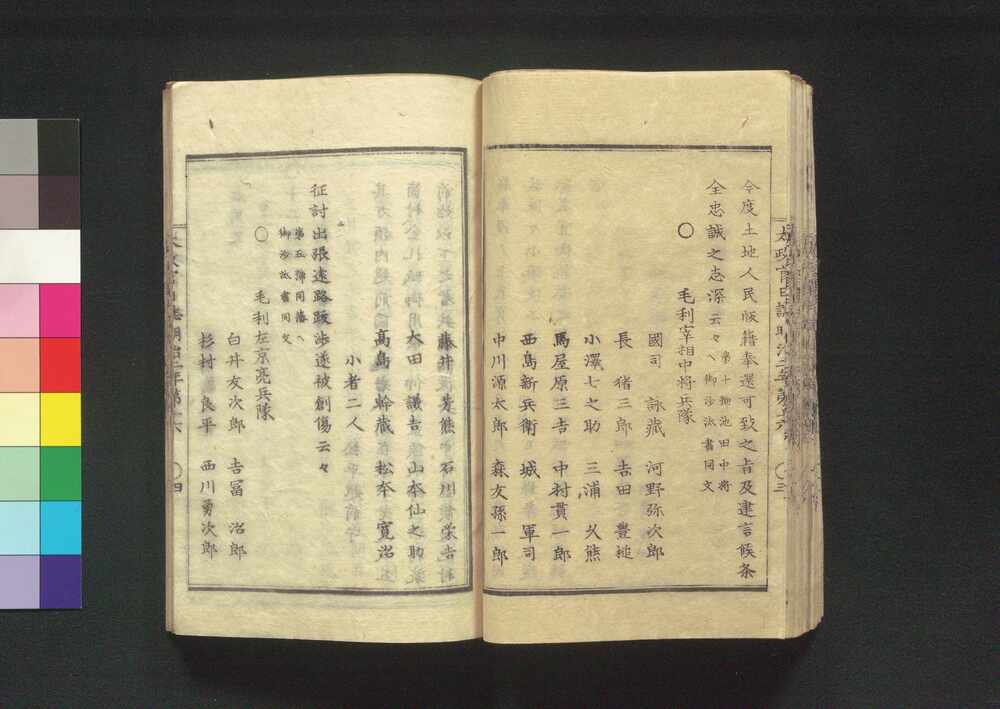 今度土地人民版籍奉還可致之旨及建言候条
全忠誠之志深云々 第十輯池田中将ヘ御沙汰書同文
○ 毛利宰相中将兵隊
國司 詠藏 河野弥次郎
長 猪三郎 吉田 豊槌
小澤七之助 三浦 久熊
馬屋原三吉 中村貫一郎
西島新兵衛 城 軍司
中川源太郎 森友孫一郎
藤井 芳熊 石川 荣吉
太田 仲議吉 山本仙之助
髙島 幹藏 松本 寛治
小者二人
征討出張遠路跋渉遂被創傷云々
第五輯同藩ヘ
御沙汰書同文
○ 毛利左京亮兵隊
白井友次郎 吉冨 治郎
杉村 良平 西川勇次郎